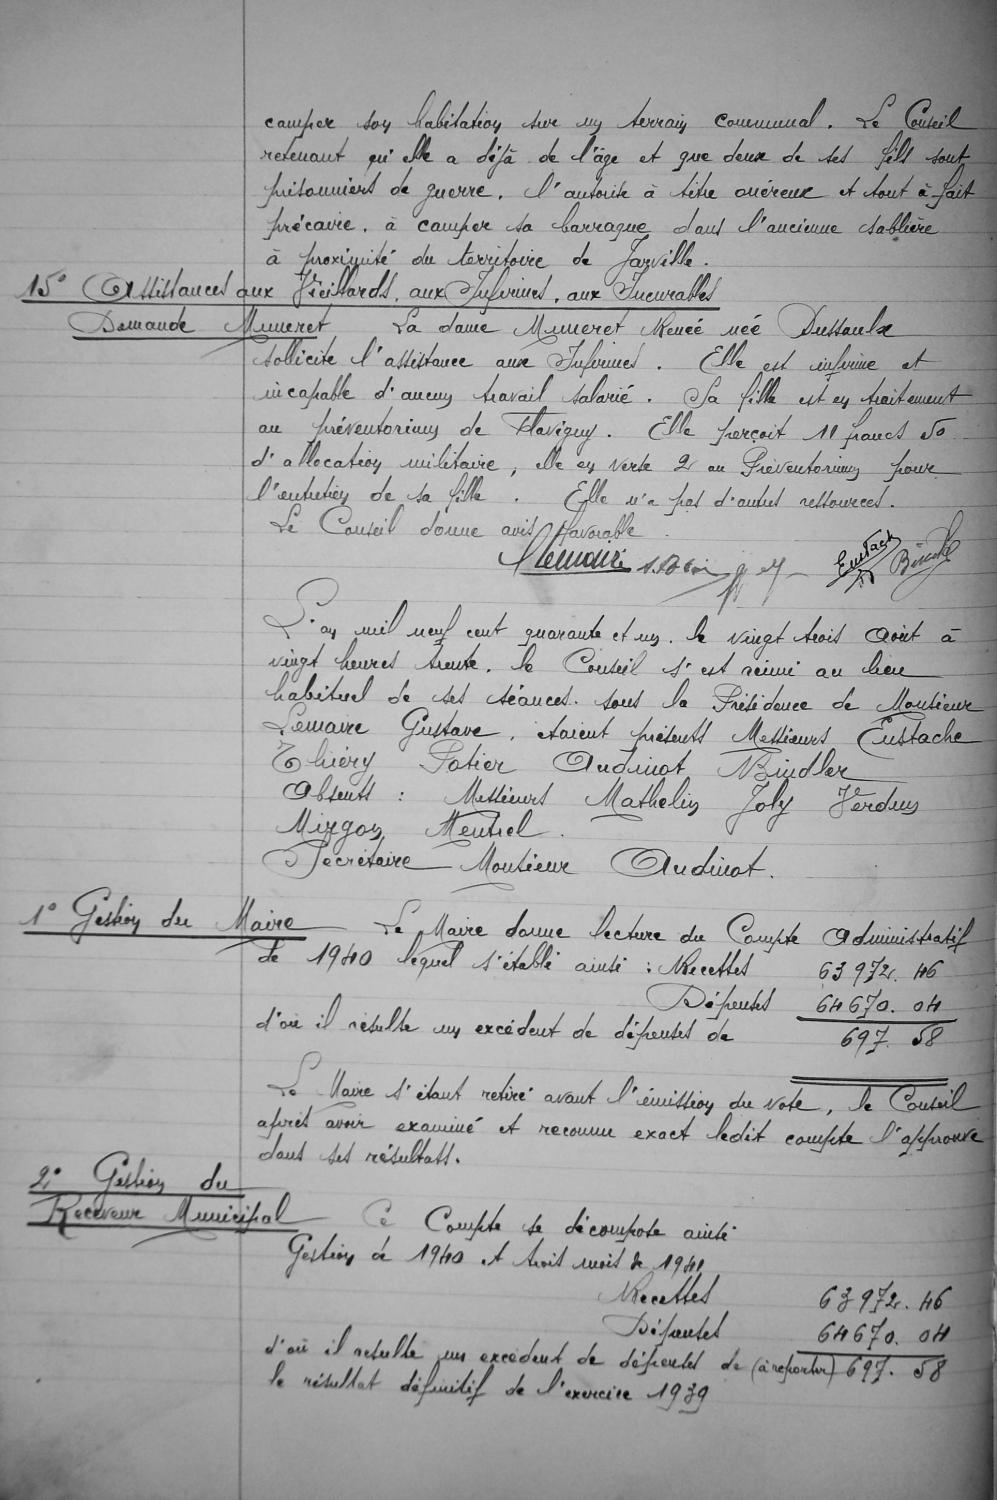 camper son habitation sur un terrain communal. Le Conseil
retenant qu'elle a déjà de l'âge et que deux de ses fils sont
prisonniers de guerre, l'autorise à titre onéreux et tout à fait
précaire, à camper sa barraque dans l'ancienne sablière
à proximité du territoire de Jarville.
15° Assistances aux Vieillards, aux Infirmes, aux Incurables
Demande Mumeret La dame Mumeret Renée née Dussaulx
sollicite l'assistance aux Infirmes. Elle est infirme et
incapable d'aucun travail salarié. Sa fille est en traitement
au préventorium de Flavigny. Elle perçoit 11 francs 50
d'allocation militaire, elle en verse 2 au Préventorium pour
l'entretien de sa fille. Elle n'a pas d'autres ressources.
Le Conseil donne avis favorable.
Lemaire Eustach Bindler
L'an mil neuf cent quarante et un, le vingt trois Août à
vingt heures trente, le Conseil s'est réuni au lieu
habituel de ses séances, sous la Présidence de Monsieur
Lemaire Gustave, étaient présents Messieurs Eustache
Thiéry Potier Audinot Bindler
Absents : Messieurs Mathelin Joly Verdun
Mizgon Mentrel.
Secrétaire Monsieur Audinot.
1° Gestion du Maire Le Maire donne lecture du Compte Administratif
de 1940 lequel s'établi ainsi : Recettes 63 972. 46
Dépenses 64 670. 04
d'où il résulte un excédent de dépenses de 697. 58
Le Maire s'étant retiré avant l'émission du vote, le Conseil
après avoir examiné et reconnu exact ledit compte l'approuve
dans ses résultats.
2° Gestion du
Receveur Municipal Ce Compte se décompose ainsi
Gestion de 1940 et trois mois de 1941
Recettes 63 972. 46
Dépenses 64 670. 04
d'où il résulte un excédent de dépenses de (à reporter) 697. 58
le résultat définitif de l'exercice 1939